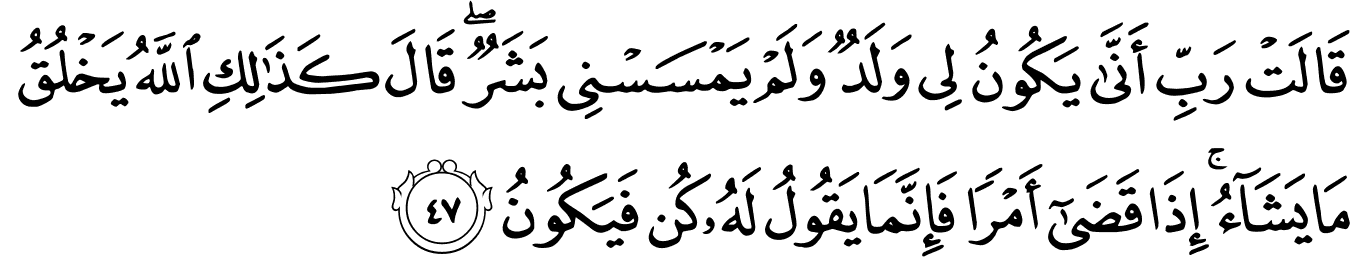 قَالَتْ رَبِّ أَنَّىٰ يَكُونُ لِى وَلَدٌ وَلَمْ يَمْسَسْنِى بَشَرٌ ۖ قَالَ كَذَٰلِكِ ٱللَّهُ يَخْلُقُ
مَا يَشَآءُ ۚ إِذَا قَضَىٰٓ أَمْرًا فَإِنَّمَا يَقُولُ لَهُۥ كُن فَيَكُونُ ٤٧